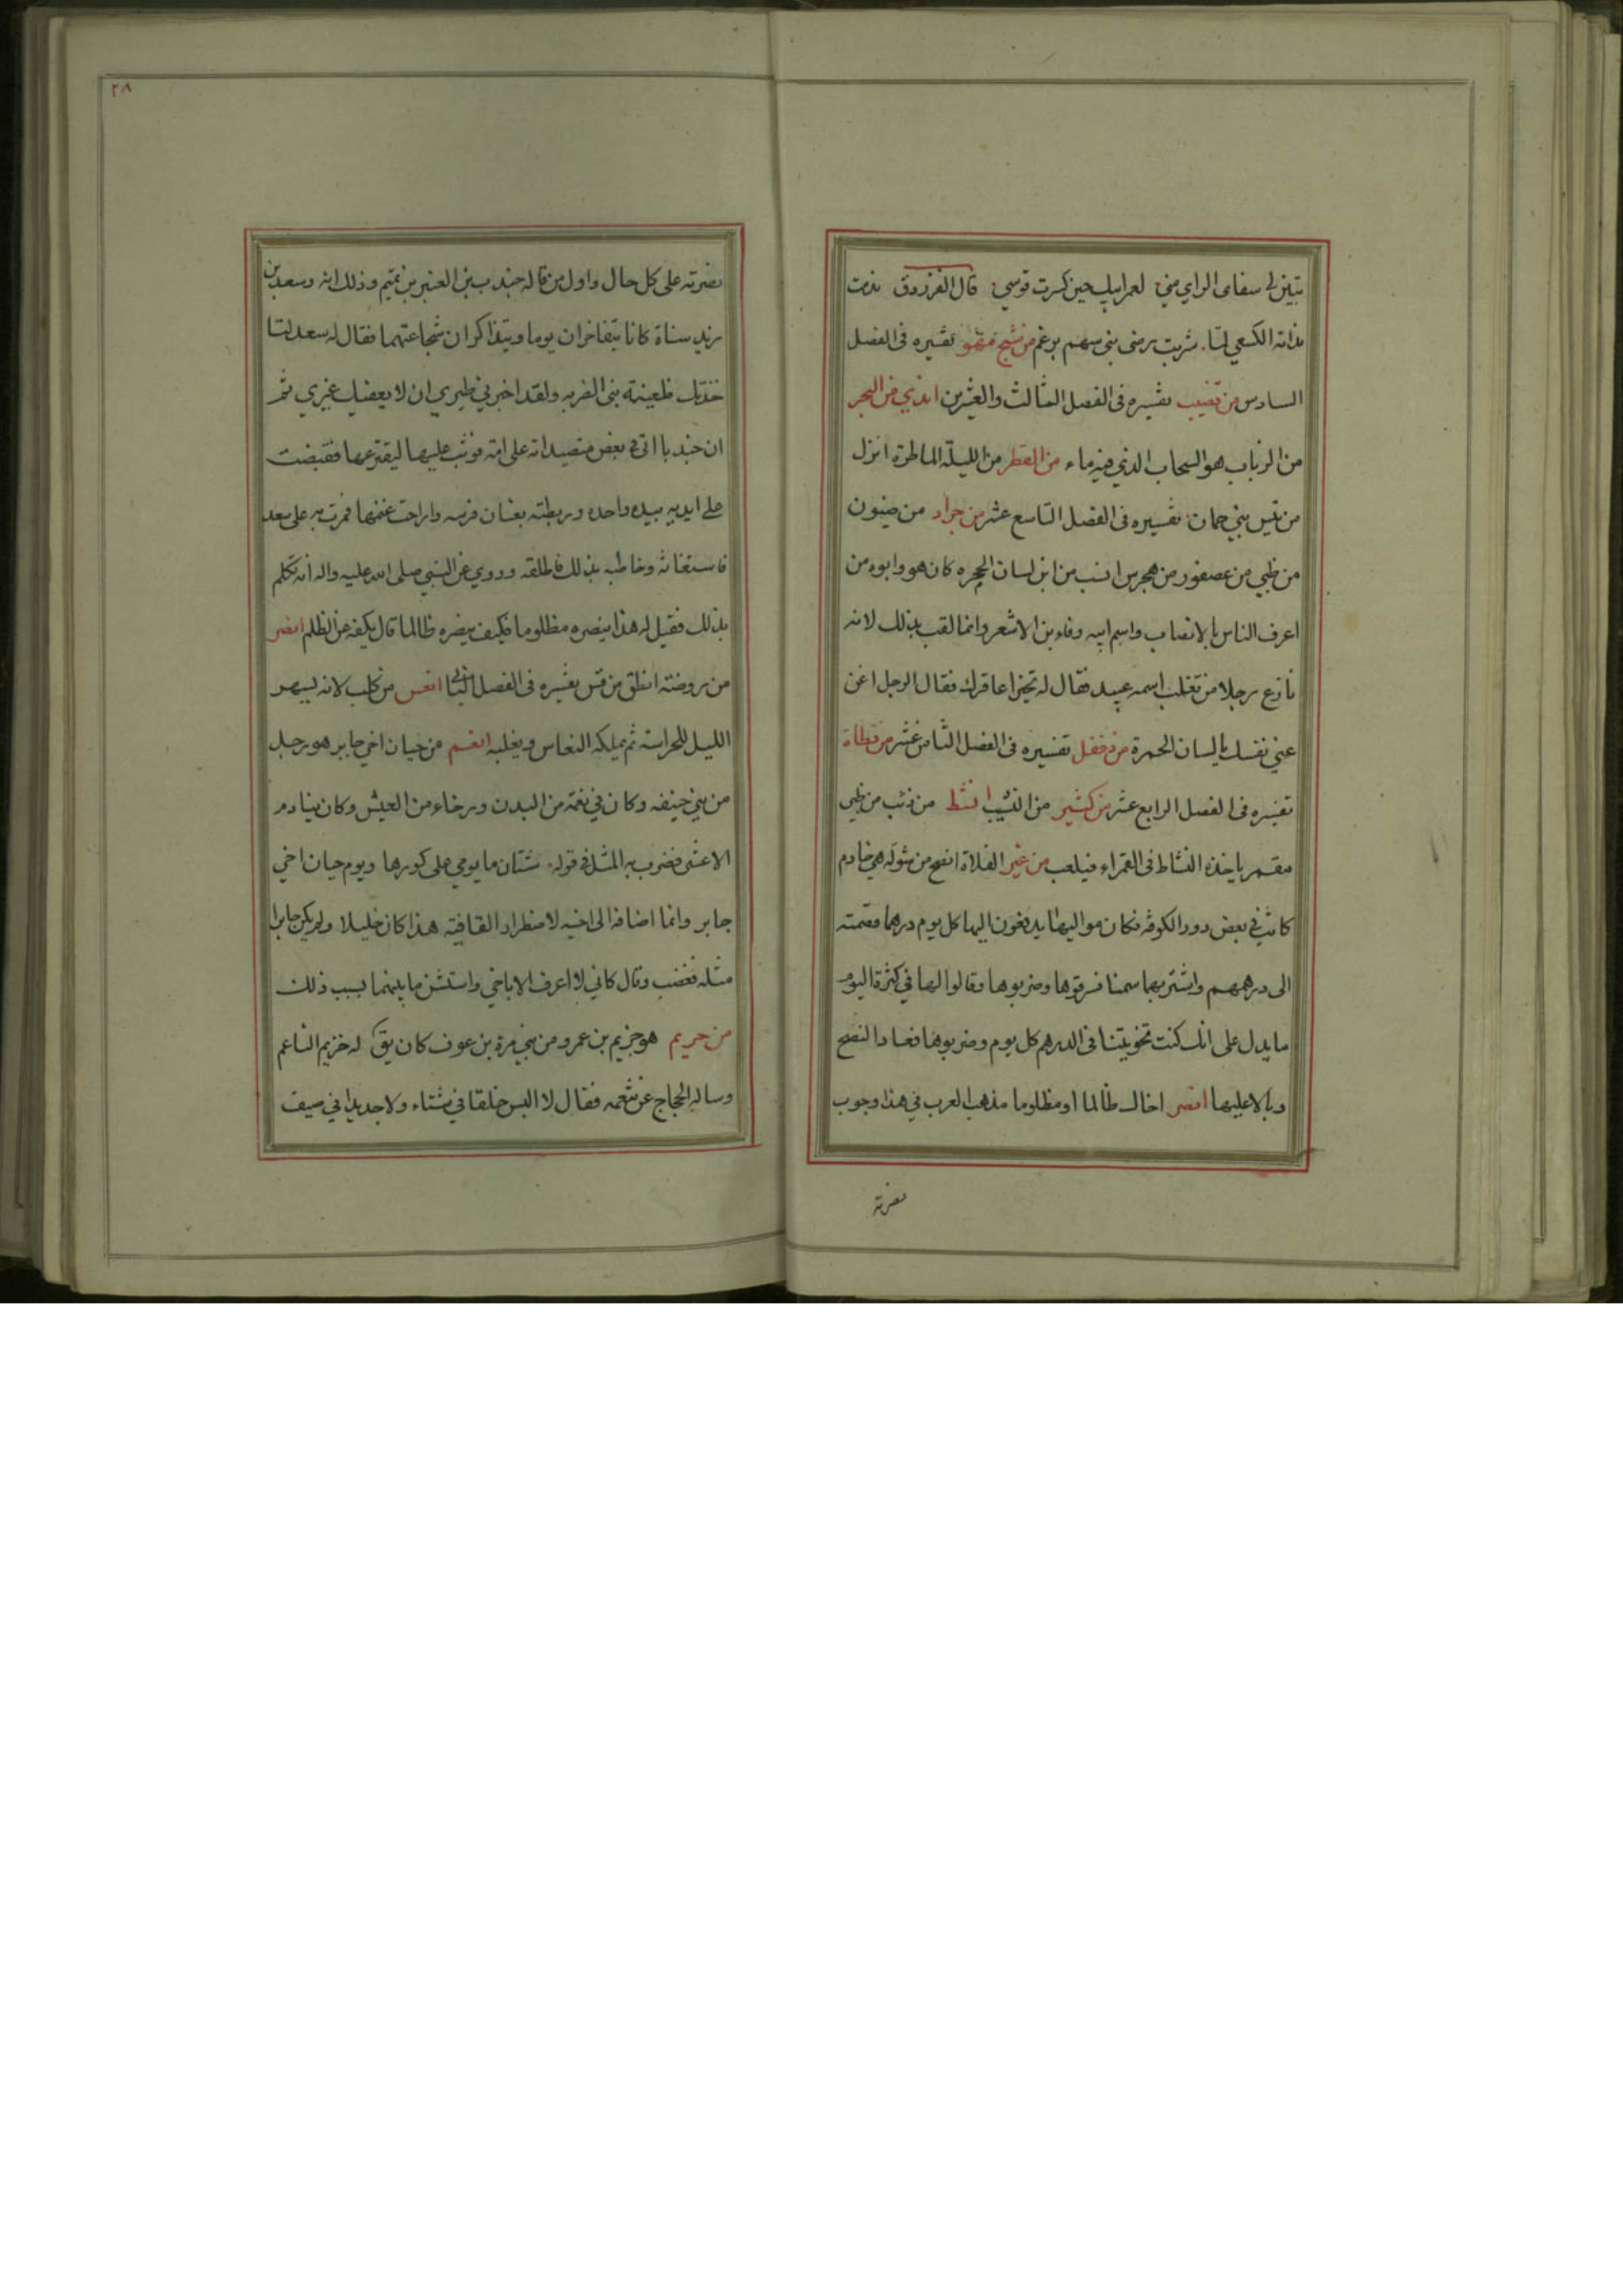 تبين لي سفاه الراي مني لعمر ابيك حين كسرت قوسي قال الفرزدق ندمت
ندامة الكسعي لما شربت برضى بني سهم برغم من شيخ مهو تفسيره في الفصل
السادس من قضيب تفسيره في الفصل الثالث والعشرين اندي من البحر
من الرباب هو السحاب الذي فيه ماء من القطر من الليلة الماطرة انزل
من تيس بني حمان تفسيره في الفصل التاسع عشر من جراد من ضيون
من ظبي من عصفور من هجرس انسب من ابن لسان الحمره كان هو وابوه من
اعرف الناس بالانساب واسم ابيه وفاء بن الاشعر وانما لقب بذلك لانه
نازع رجلا من تغلب اسمه عبيد فقال له تخيرا عاقرك فقال الرجل اغن
عني نفسك يا لسان الحمرة من دغفل تفسيره في الفصل الثامن عشر من قطاة
تفسيره في الفصل الرابع عشر من كثير من النسيب انشط من ذئب من ظبي
مقمر ياخذه النشاط في القمراء فيلعب من عير الفلاة انصح من شولة هي خادم
كانت في بعض دور الكوفة فكان مواليها يدفعون اليها كل يوم درهما فضمته
الى درهمهم واشتر بهما سمنا فسرقوها وضربوها وقالوا لها في كثرة اليوم
ما يدل على انك كنت تخونينا في الدرهم كل يوم وضربوها فعاد النصح
وبالا عليها انصر اخاك ظالما او مظلوما مذهب العرب في هذا وجوب
نصرته
٢٨
نصرته على كل حال واول من قاله جندب بن العنبر بن تميم وذلك انه وسعد بن
زيد مناة كانا يتفاخران يوما ويتذاكران شجاعتهما فقال له سعد لتا
خذنك ظعينة بني العذريه ولقد اخبرني طيري ان لا يعفيك غيري ثم
ان جندبا اتى في بعض متصيداته على امة فوثب عليها ليقترعها فقبضت
على ايديه بيده واحده وربطته بعنان فرسه وراحت غنمها فمرت به على سعد
فاستغاثه وخاطبه بذلك فاطلقه وروي عن النبي صلى الله عليه واله انه تكلم
بذلك فقيل له هذا ينصره مظلوما فكيف ينصره ظالما قال يكفه عن الظلم انضر
من روضته انطق من قس تفسيره في الفصل الثاني انعس من كلب لانه يسهر
الليل للحراسة ثم يملكه النعاس ويغلبه انعم من حيان اخي جابر هو رجل
من بني حنيفه وكان في نعمة من البدن ورخاء من العيش وكان ينادم
الاعشى فضرب به المثل في قوله شتان ما يومي على كورها ويوم حيان اخي
جابر وانما اضافه الى اخيه لاضطرار القافية هذا كان خليلا ولم يكن جابرا
مثله فغضب وقال كاني لا اعرف الا باخي واستشن ما بينهما بسبب ذلك
من خريم هو خزيم بن عمرو من بني مرة بن عوف كان يق له خزيم الناعم
وساله الحجاج عن تنعمه فقال لا البس خلقا في شتاء ولا جديدا في صيف